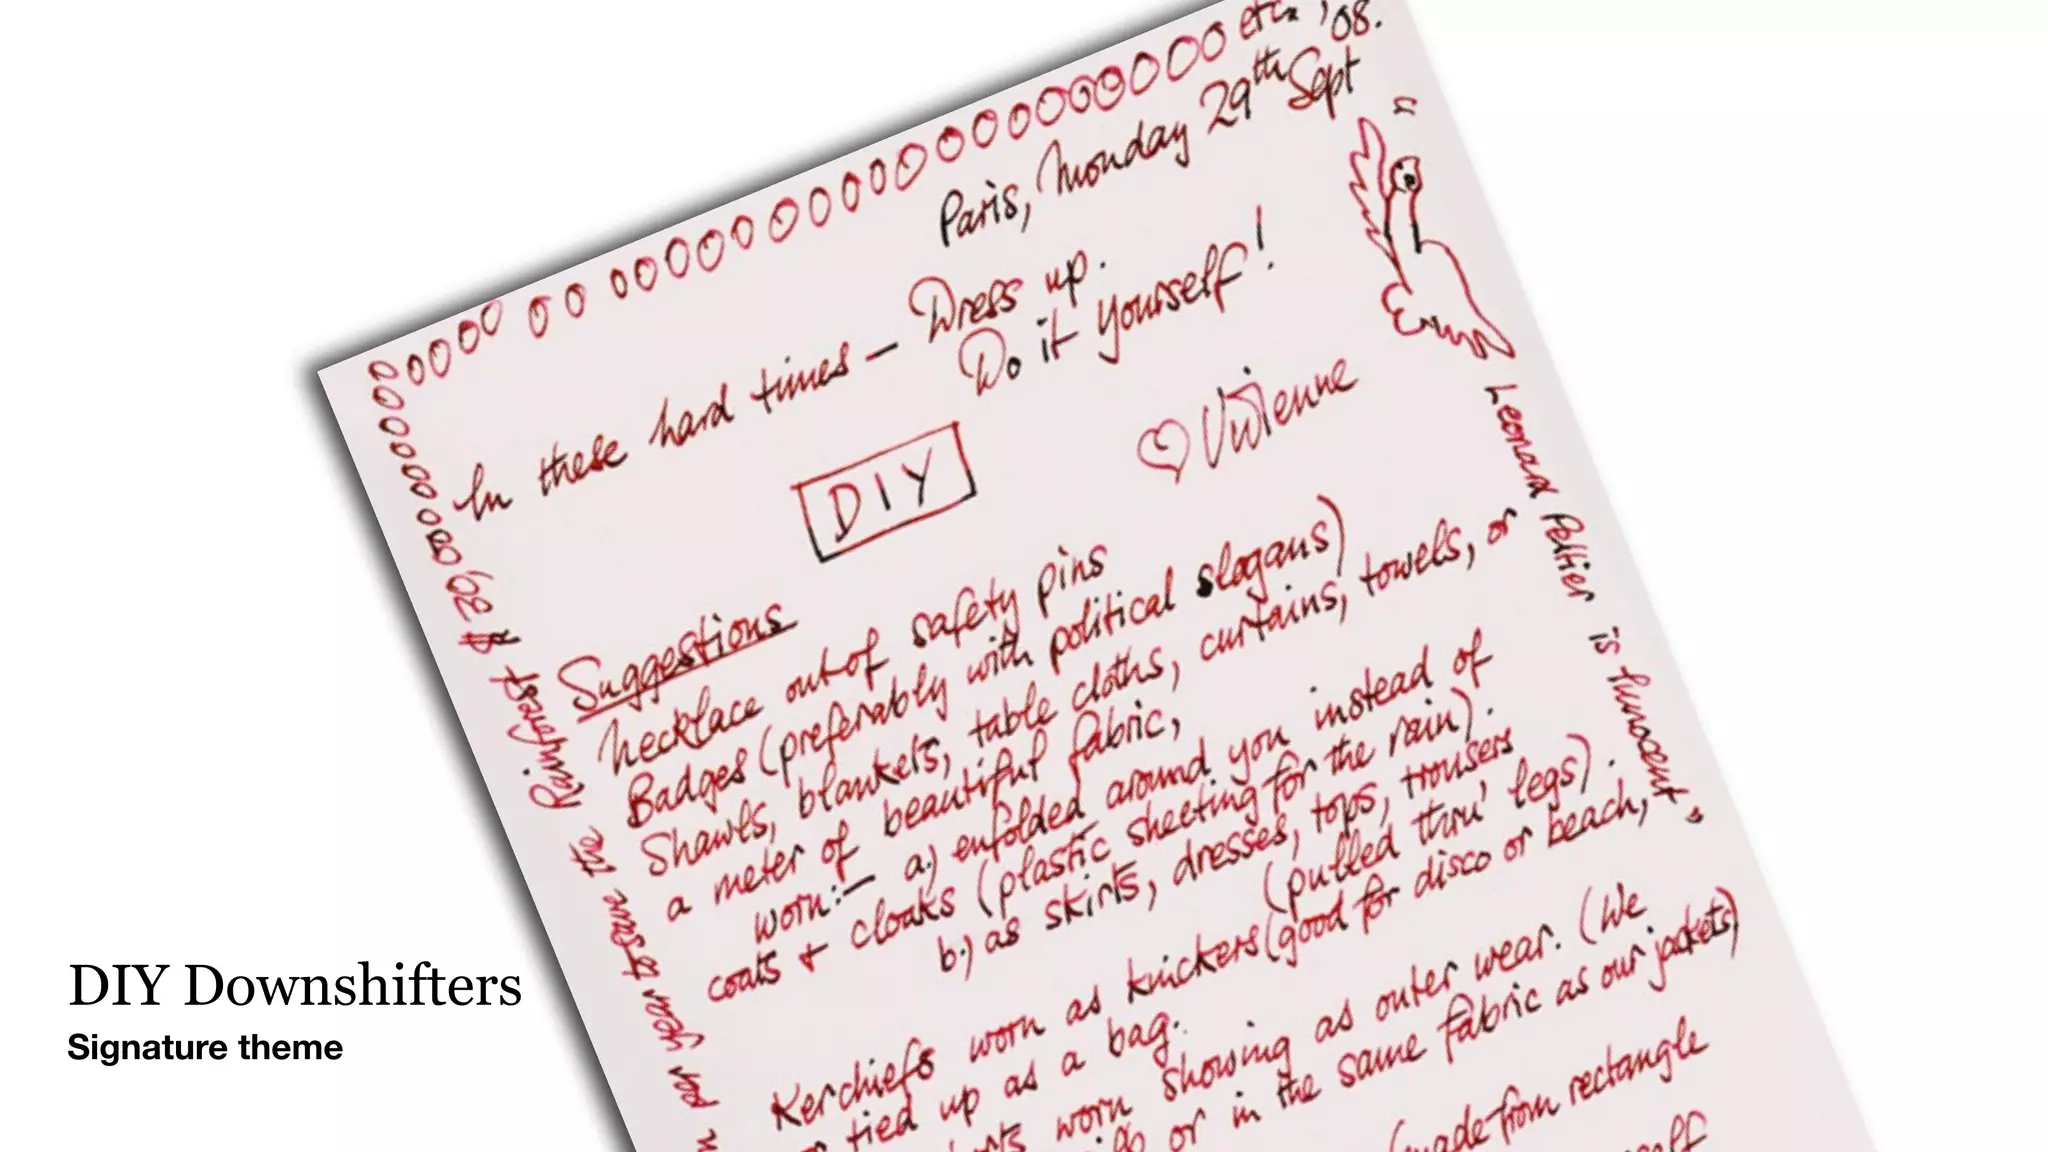 Paris, Monday 29th Sept '08.
In these hard times — Dress up.
Do it yourself!
♡ Vivienne
DIY
Suggestions
Necklace out of safety pins
Badges (preferably with political slogans)
Shawls, blankets, table cloths, curtains, towels, or
a meter of beautiful fabric,
worn:— a.) enfolded around you instead of
coats + cloaks (plastic sheeting for the rain).
b.) as skirts, dresses, tops, trousers
(pulled thru' legs).
Kerchiefs worn as knickers (good for disco or beach,
or tied up as a bag.
worn showing as outer wear. (We
or in the same fabric as our jackets)
(made from rectangle
"Leonard Peltier is innocent"
Rainforest
DIY Downshifters
Signature theme